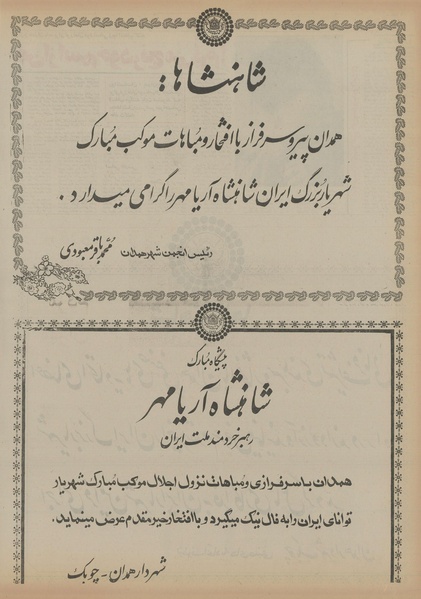 شاهنشاها :
همدان پیر و سرفراز با افتخار و مباهات موکب مبارک
شهریار بزرگ ایران شاهنشاه آریامهر را گرامی میدارد .
رئیس انجمن شهر همدان محمد باقر معبودی
پیشگاه مبارک
شاهنشاه آریامهر
رهبر خردمند ملت ایران
همدان با سرفرازی و مباهات نزول اجلال موکب مبارک شهریار
توانای ایران را به فال نیک میگیرد و با افتخار خیر مقدم عرض مینماید.
شهردار همدان - چوبک